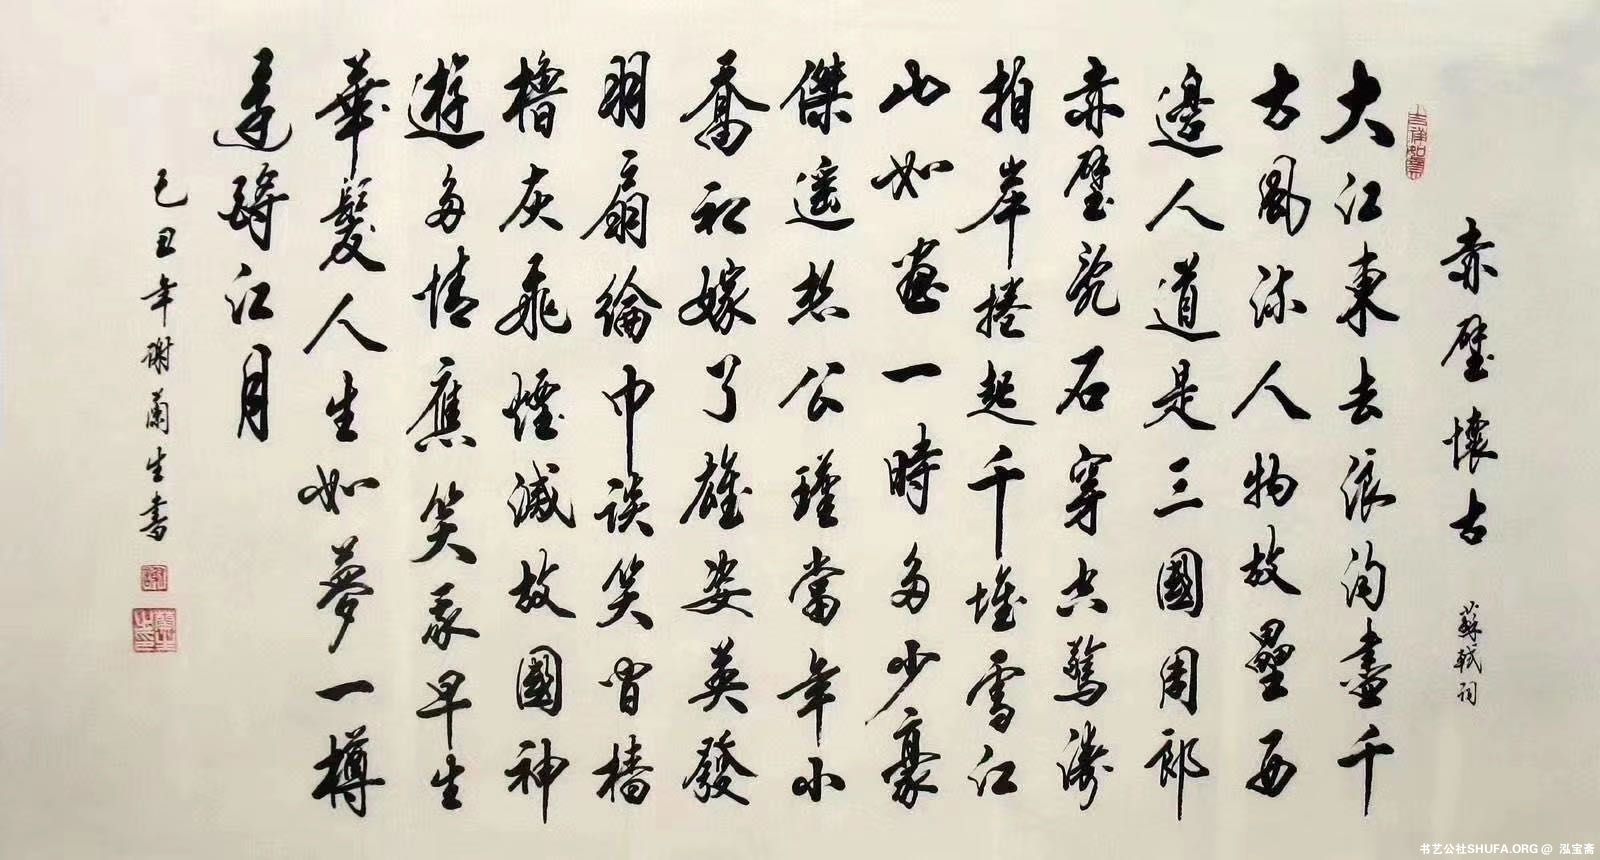 吉祥如意
赤壁懷古 蘇軾詞
大江東去浪淘盡千
古風流人物故壘西
邊人道是三國周郎
赤壁亂石穿空驚濤
拍岸捲起千堆雪江
山如畫一時多少豪
傑遥想公瑾當年小
喬初嫁了雄姿英發
羽扇綸巾談笑間檣
櫓灰飛煙滅故國神
遊多情應笑我早生
華髮人生如夢一樽
還酹江月
己丑年謝蘭生書
书艺公社SHUFA.ORG @ 泓宝斋